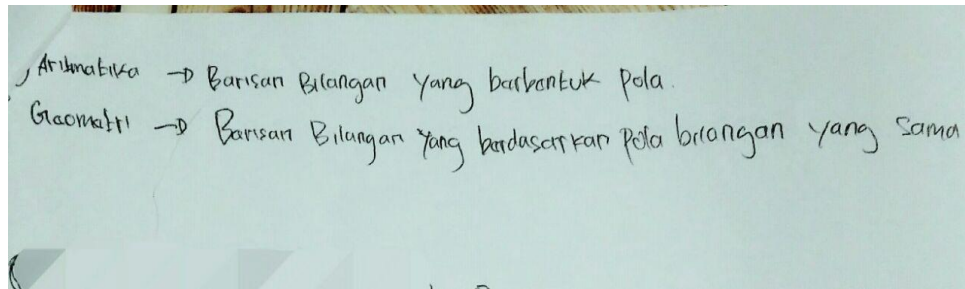 Aritmatika → Barisan Bilangan yang berbentuk pola.
Geometri → Barisan Bilangan yang berdasarkan pola bilangan yang sama